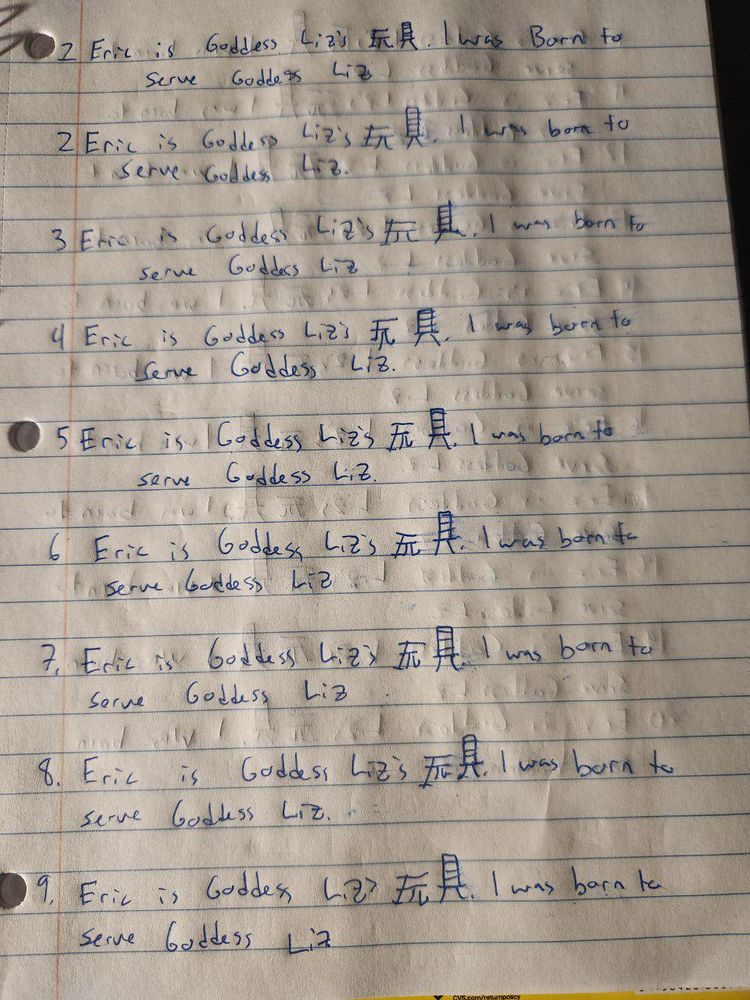 2 Eric is Goddess Liz's 玩具. I was Born to
serve Goddess Liz
2 Eric is Goddess Liz's 玩具. I was born to
serve Goddess Liz.
3 Eric is Goddess Liz's 玩具. I was born to
serve Goddess Liz
4 Eric is Goddess Liz's 玩具. I was born to
serve Goddess Liz.
5 Eric is Goddess Liz's 玩具. I was born to
serve Goddess Liz.
6 Eric is Goddess Liz's 玩具. I was born to
serve Goddess Liz.
7. Eric is Goddess Liz's 玩具. I was born to
serve Goddess Liz
8. Eric is Goddess Liz's 玩具. I was born to
serve Goddess Liz.
9. Eric is Goddess Liz's 玩具. I was born to
serve Goddess Liz
CVS.com/returnpolicy